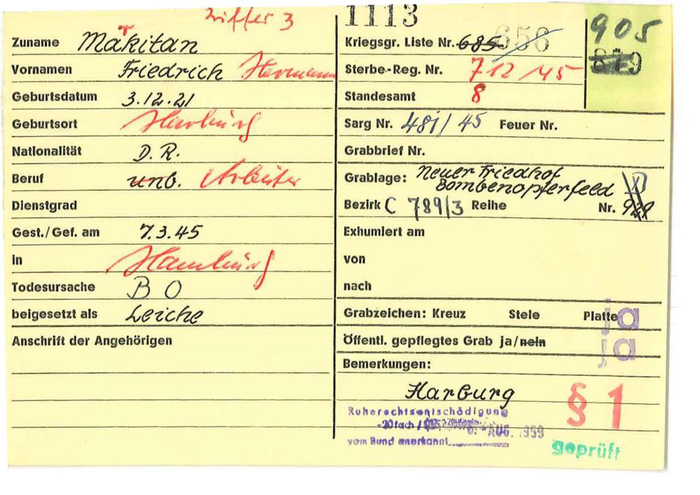 Ziffer 3
1113
905
Zuname Makitan
Vornamen Friedrich Hermann
Geburtsdatum 3.12.21
Geburtsort Harburg
Nationalität D. R.
Beruf unb. Arbeiter
Dienstgrad
Gest./Gef. am 7.3.45
in Hamburg
Todesursache B O
beigesetzt als Leiche
Anschrift der Angehörigen
Kriegsgr. Liste Nr. 685 656
Sterbe-Reg. Nr. 712/45
Standesamt 8
Sarg Nr. 481/45 Feuer Nr.
Grabbrief Nr.
Grablage: Neuer Friedhof
Bombenopferfeld
Bezirk C 789/3 Reihe Nr.
Exhumiert am
von
nach
Grabzeichen: Kreuz Stele Platte ja
Öffentl. gepflegtes Grab ja/nein ja
Bemerkungen:
Harburg
§ 1
Ruherechtsentschädigung
-20fach AUG. 1959
vom Bund anerkannt
geprüft